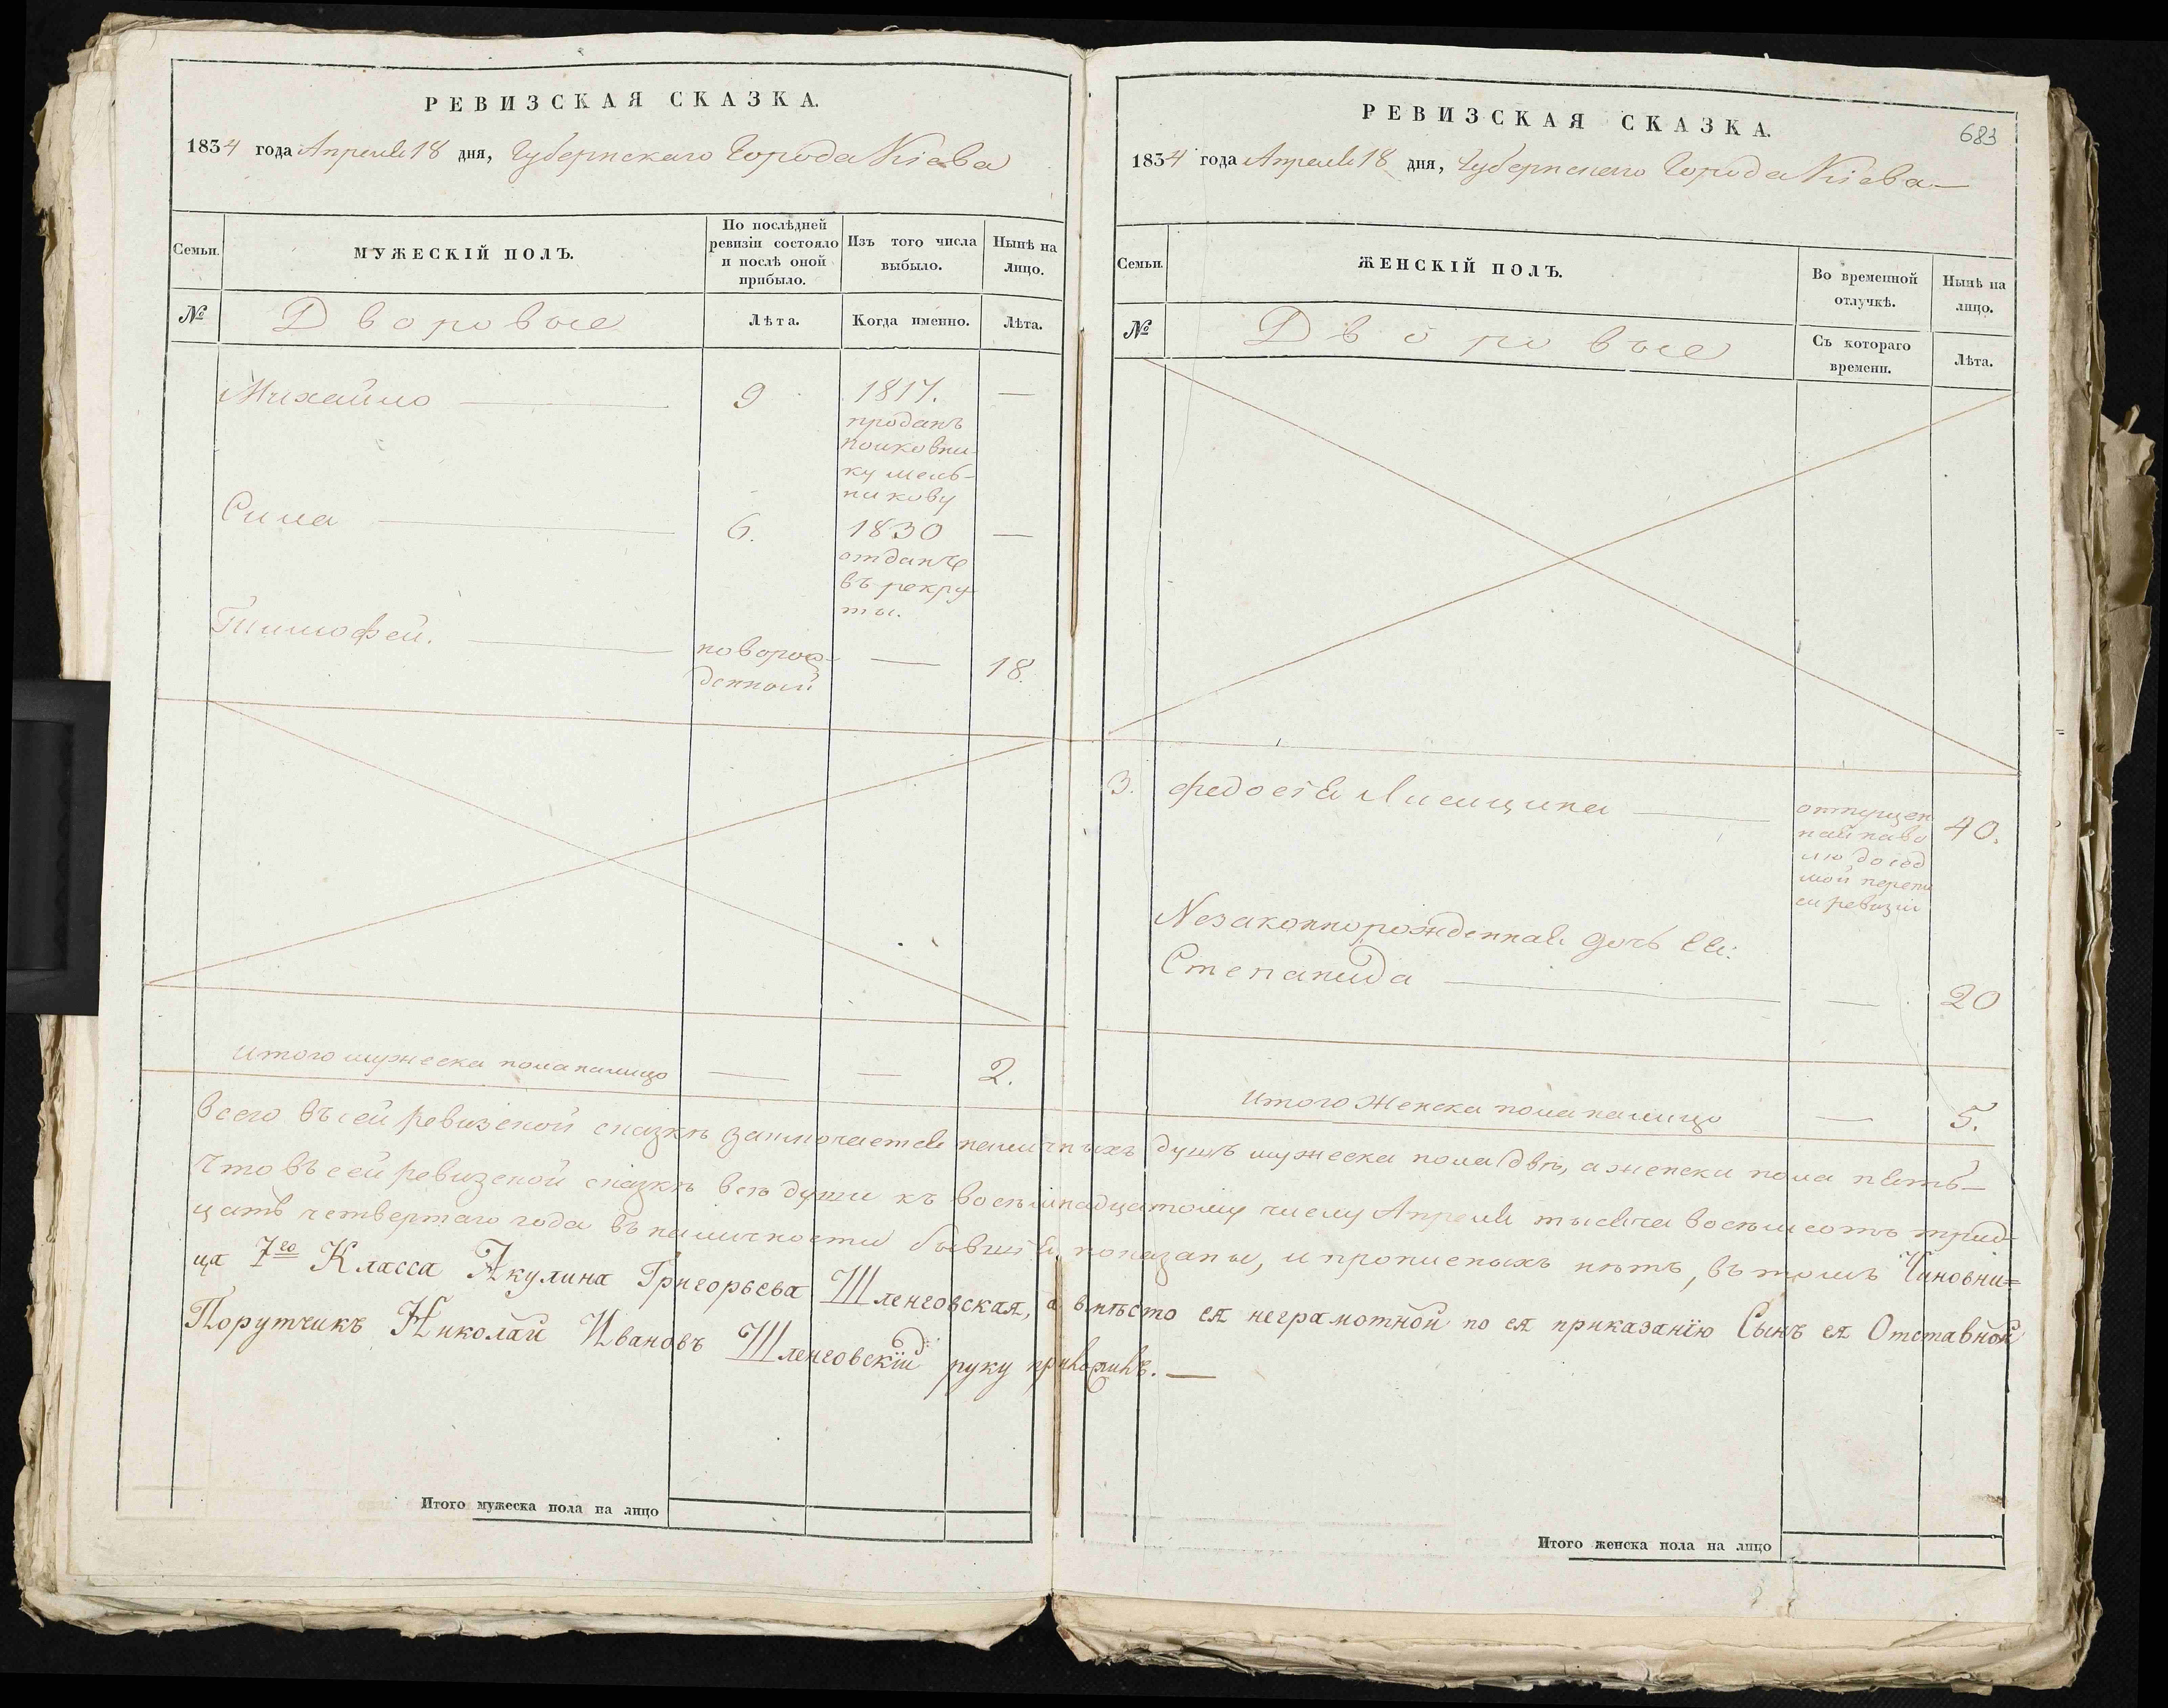 РЕВИЗСКАЯ СКАЗКА.
1834 года Апреля 18 дня, Губернскаго Города Кіева
Семьи.
МУЖЕСКІЙ ПОЛЪ.
По послѣдней
ревизіи состояло
и послѣ оной
прибыло.
Изъ того числа
выбыло.
Нынѣ на
лицо.
№
Дворовые
Лѣта.
Когда именно.
Лѣта.
Михайло — 9 1817. —
проданъ
полковни-
ку Мель-
никову
Сила — 6. 1830 —
отданъ
въ рекру-
ты.
Тимофей. — новорож- — 18.
денный
Итого мужеска пола налицо — — 2.
РЕВИЗСКАЯ СКАЗКА.
683
1834 года Апреля 18 дня, Губернскаго Города Кіева —
Семьи.
ЖЕНСКІЙ ПОЛЪ.
Во временной
отлучкѣ.
Нынѣ на
лицо.
№
Дворовые
Съ котораго
времени.
Лѣта.
3. Федосія Лисицина — 40.
отпущен
ная на во
лю до сед
мой
ревизіи
Незаконнорожденная дочь ея:
Степанида — — 20
Итого Женска пола налицо — 5.
Всего въ сей ревизской сказкѣ заключается наличныхъ душъ мужеска пола двѣ, а женска пола пять —
Что въ сей ревизской сказкѣ всѣ души къ восемнадцатому числу Апреля тысяча восемсотъ трид-
цать четвертаго года въ наличности бывшія, показаны, и прописныхъ нѣтъ, въ томъ Чиновни=
ца 7го Класса Акулина Григорьева Шленговская, а вмѣсто ея неграмотной по ея приказанїю Сынъ ея Отставной
Порутчикъ Николай Ивановъ Шленговскїй руку приложилъ. —
Итого мужеска пола на лицо
Итого женска пола на лицо